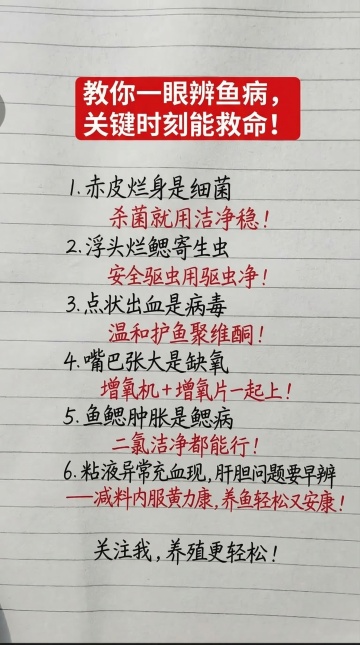 教你一眼辨鱼病，
关键时刻能救命！
1.赤皮烂身是细菌
杀菌就用洁净稳！
2.浮头烂鳃寄生虫
安全驱虫用驱虫净！
3.点状出血是病毒
温和护鱼聚维酮！
4.嘴巴张大是缺氧
增氧机+增氧片一起上！
5.鱼鳃肿胀是鳃病
二氯洁净都能行！
6.粘液异常充血现,肝胆问题要早辨
——减料内服黄力康,养鱼轻松又安康！
关注我,养殖更轻松！